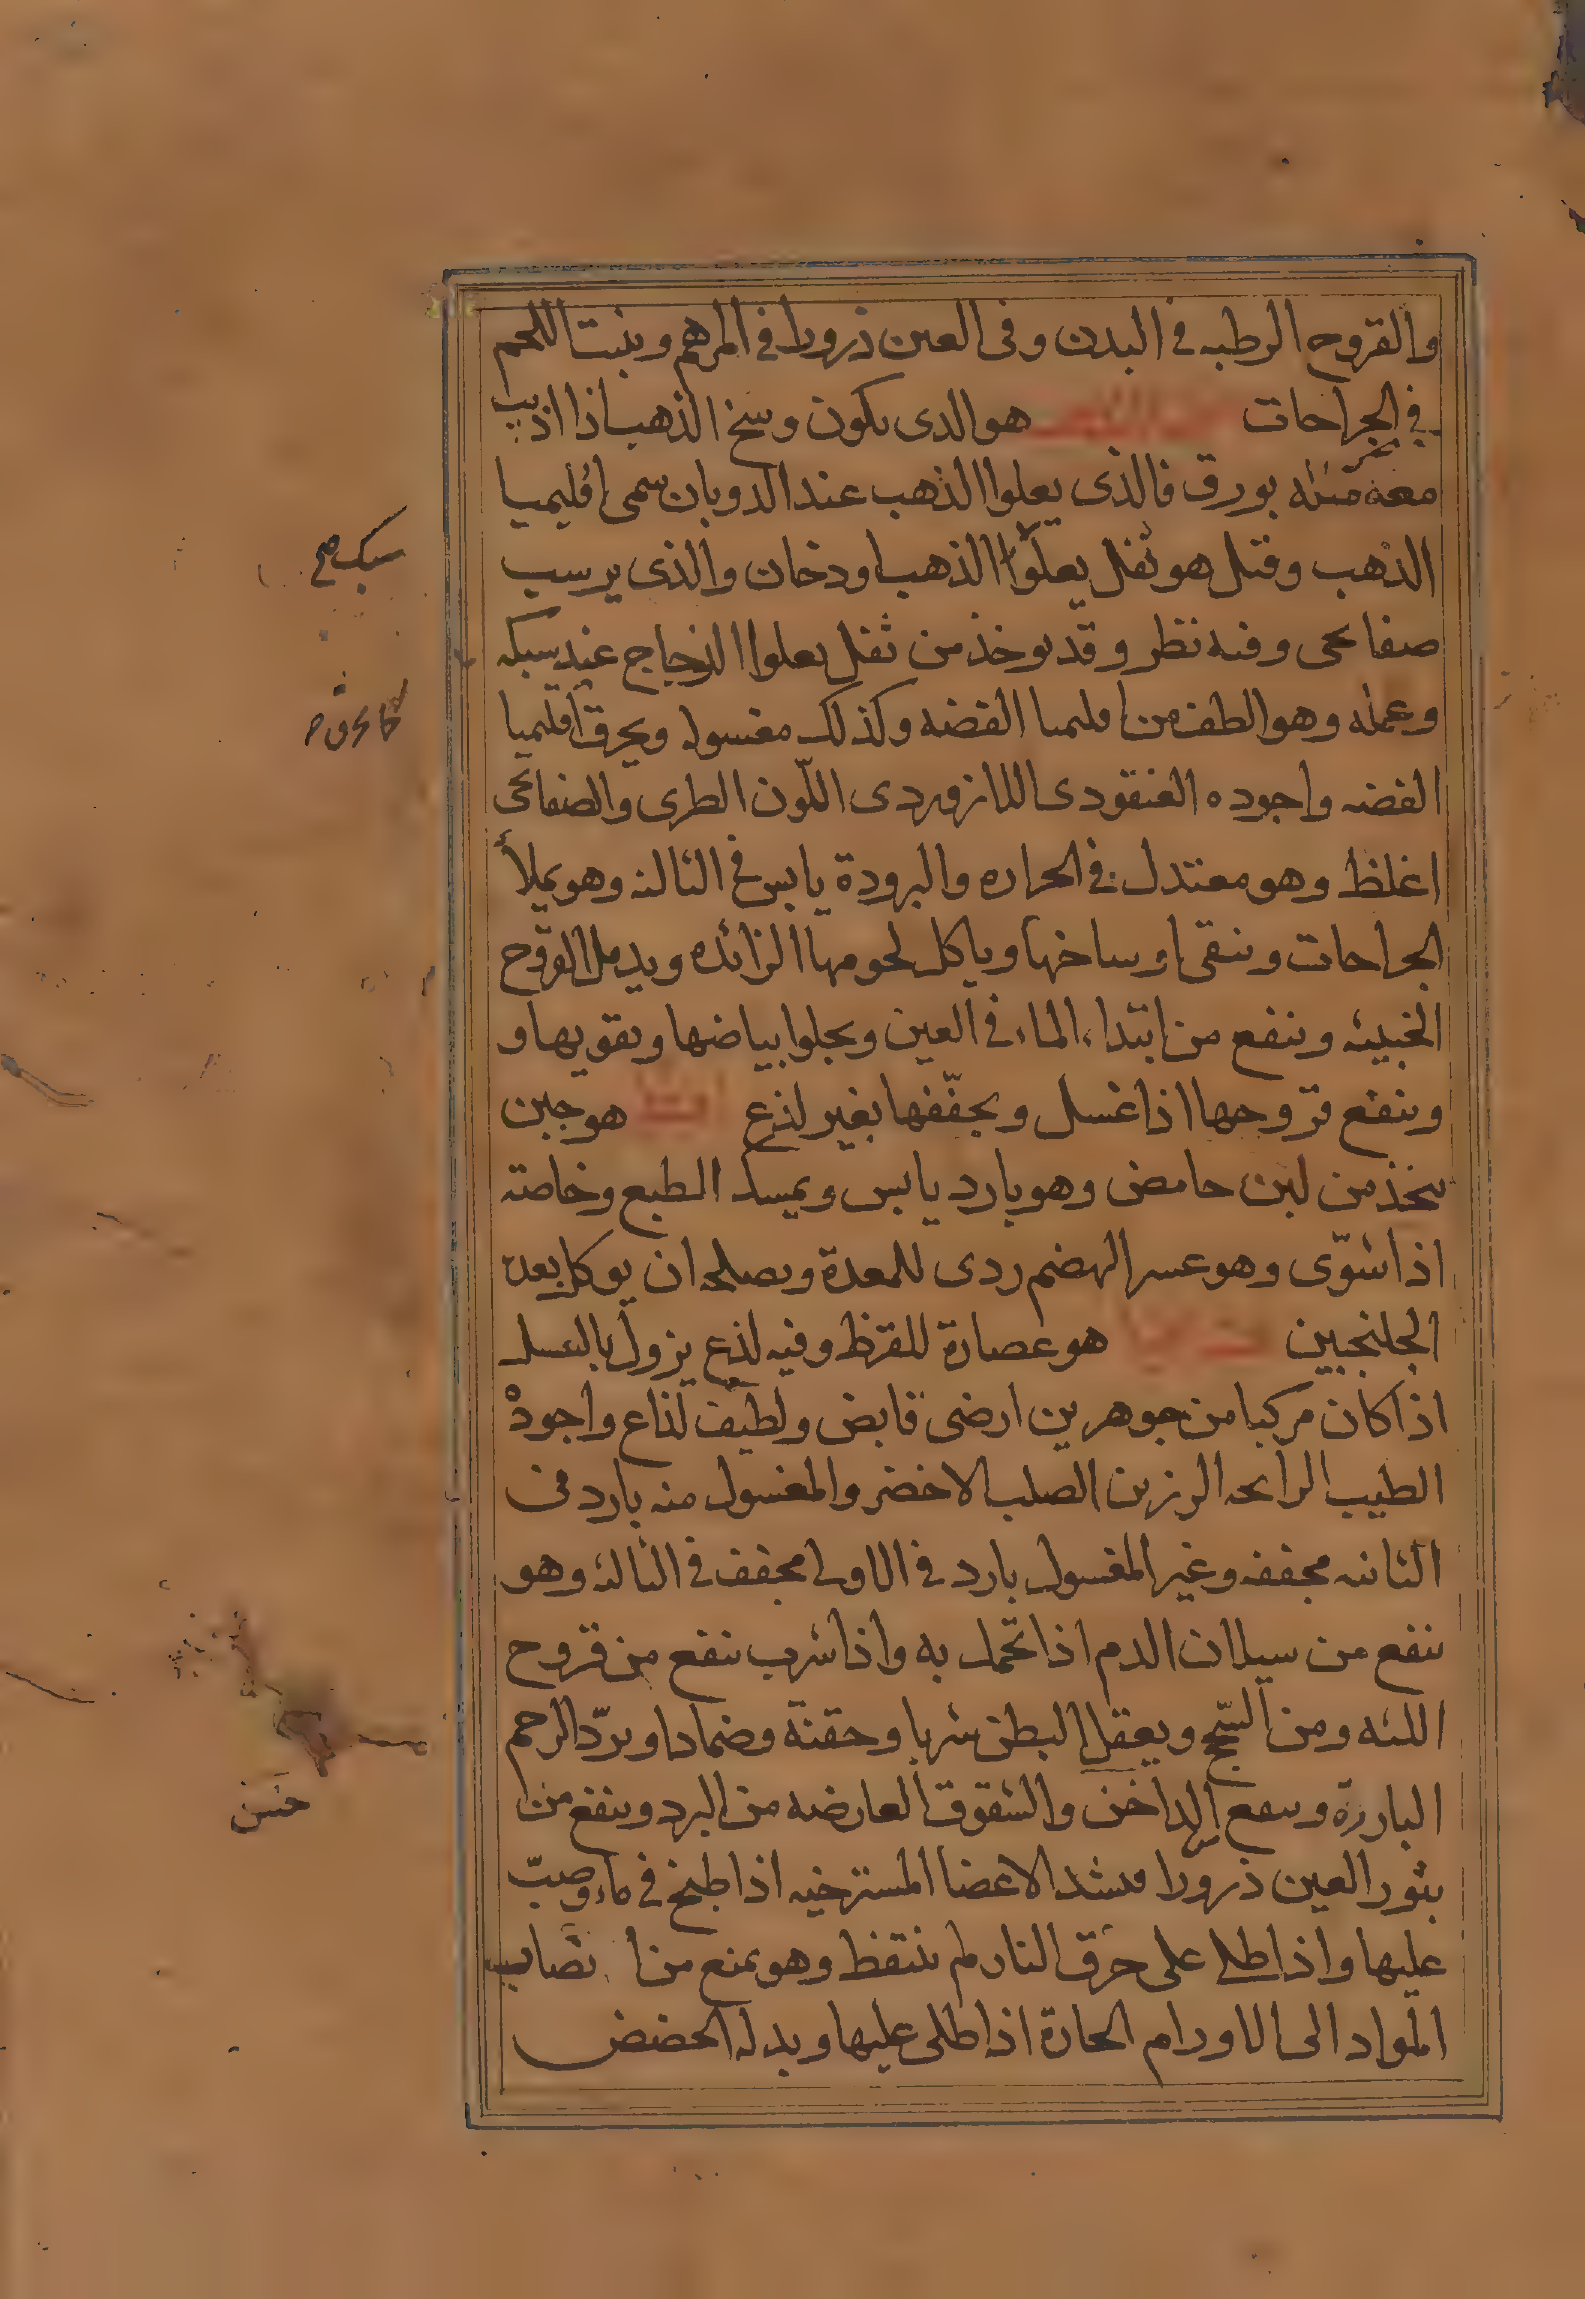 والقروح الرطبه في البدن وفى العين ذرورا في المرهم وينبت اللحم
في الجراحات هو الدى يكون وسخ الذهب اذا اذيب
معه مثله بورق فالذى يعلوا الذهب عند الدوبان سمى اقليميا
الذهب وقيل هو ثفل يعلوا الذهب او دخان والذى يرسب
صفائحى وفيه نظر وقد يوخذ من ثفل يعلوا الزجاج عند سبكه
وعمله وهو الطف من اقليميا الفضه وكذلك مغسولا ويحرق اقليميا
الفضه واجوده العنقودى اللازوردى اللّون الطرى والصفائحى
اغلظ وهو معتدل في الحراره والبرودة يابس في الثالثه وهو يملأ
الجراحات وينقى اوساخها وياكل لحومها الزائده ويدمل القروح
الخبيثه وينفع من ابتداء الماء في العين ويجلوا بياضها ويقويها و
وينفع قروحها اذا غسل ويجفّفها بغير لذع هو جبن
يتخذ من لبن حامض وهو بارد يابس ويمسك الطبع وخاصته
اذا شوّى وهو عسر الهضم ردى للمعدة ويصلحه ان يوكل بعده
الجلنجبين هو عصارة للقرظ وفيه لذع يزول بالغسل
اذا كان مركبا من جوهرين ارضى قابض ولطيف لذاع واجوده
الطيب الرايحه الرزين الصلب الاخضر والمغسول منه بارد فى
الثانيه مجففه وغير المغسول بارد في الاولى مجفف في الثالثه وهو
ينفع من سيلان الدم اذا تحمل به واذا شرب ينفع من قروح
اللثه ومن السّحج ويعقل البطن شربا وحقنة وضمادا ويردّ الرحم
البارزة وينفع الداخن والشقوق العارضه من البرد وينفع من
بثور العين ذرورا ويشد الاعضا المسترخيه اذا طبخ في ماء وصبّ
عليها واذا طلا على حرق النار لم يتنفظ وهو يمنع من انصاب
المواد الى الاورام الحارة اذا طلى عليها وبدله الحضض
سبك صح